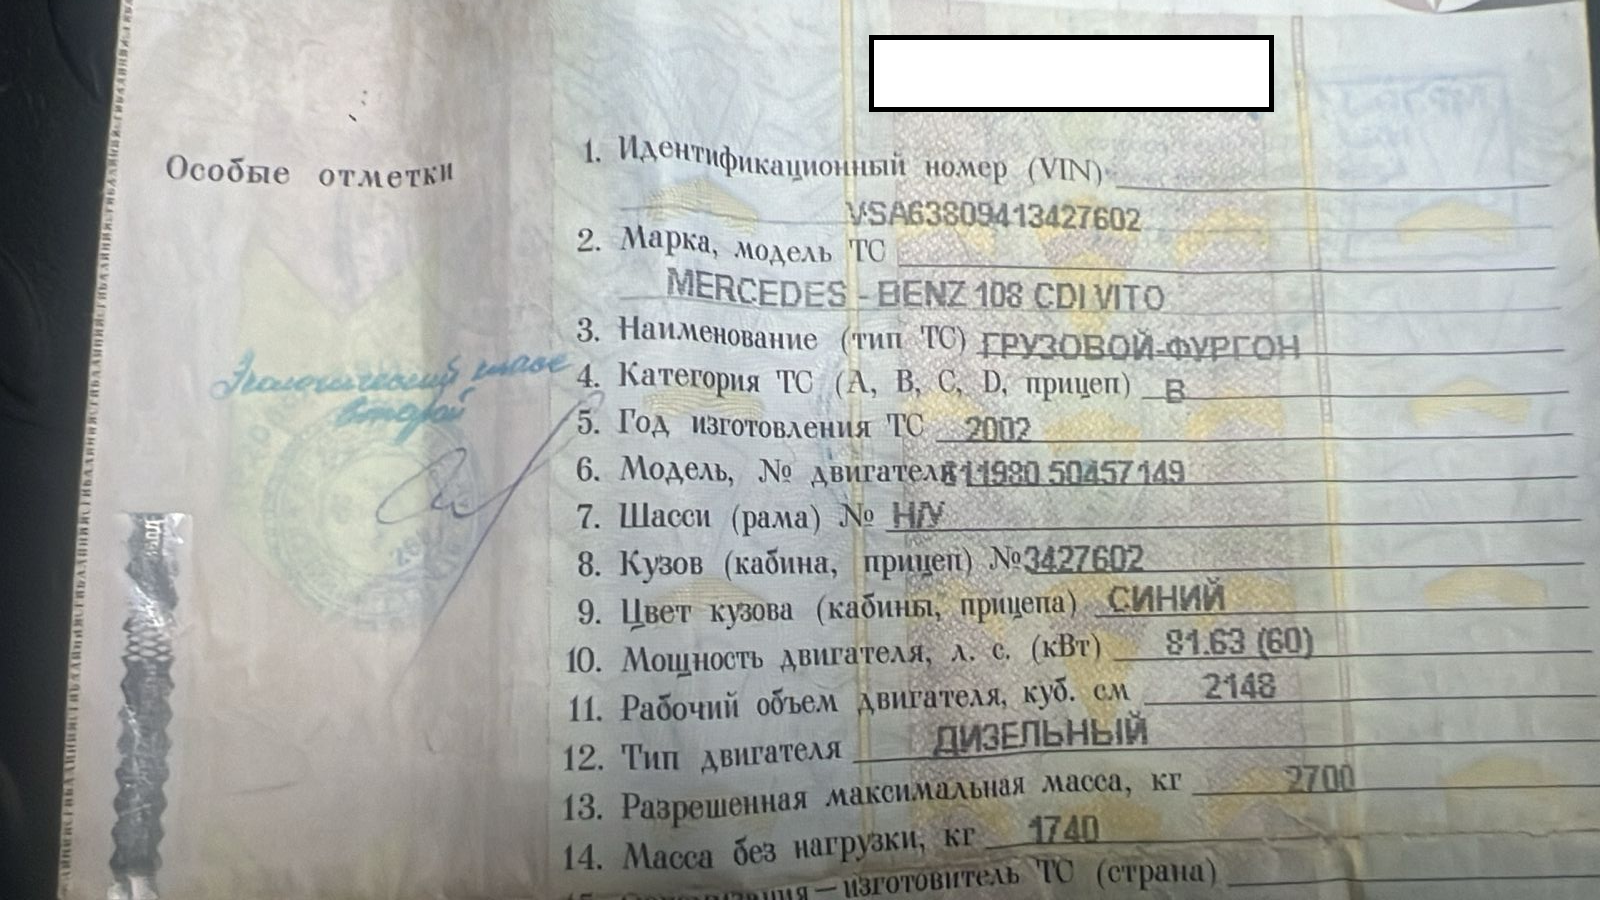 Особые отметки
Экологический класс
второй
1. Идентификационный номер (VIN)
VSA63809413427602
2. Марка, модель ТС
MERCEDES - BENZ 108 CDI VITO
3. Наименование (тип ТС) ГРУЗОВОЙ-ФУРГОН
4. Категория ТС (A, B, C, D, прицеп) B
5. Год изготовления ТС 2002
6. Модель, № двигателя 611980 50457149
7. Шасси (рама) № Н/У
8. Кузов (кабина, прицеп) № 3427602
9. Цвет кузова (кабины, прицепа) СИНИЙ
10. Мощность двигателя, л. с. (кВт) 81.63 (60)
11. Рабочий объем двигателя, куб. см 2148
12. Тип двигателя ДИЗЕЛЬНЫЙ
13. Разрешенная максимальная масса, кг 2700
14. Масса без нагрузки, кг 1740
изготовитель ТС (страна)